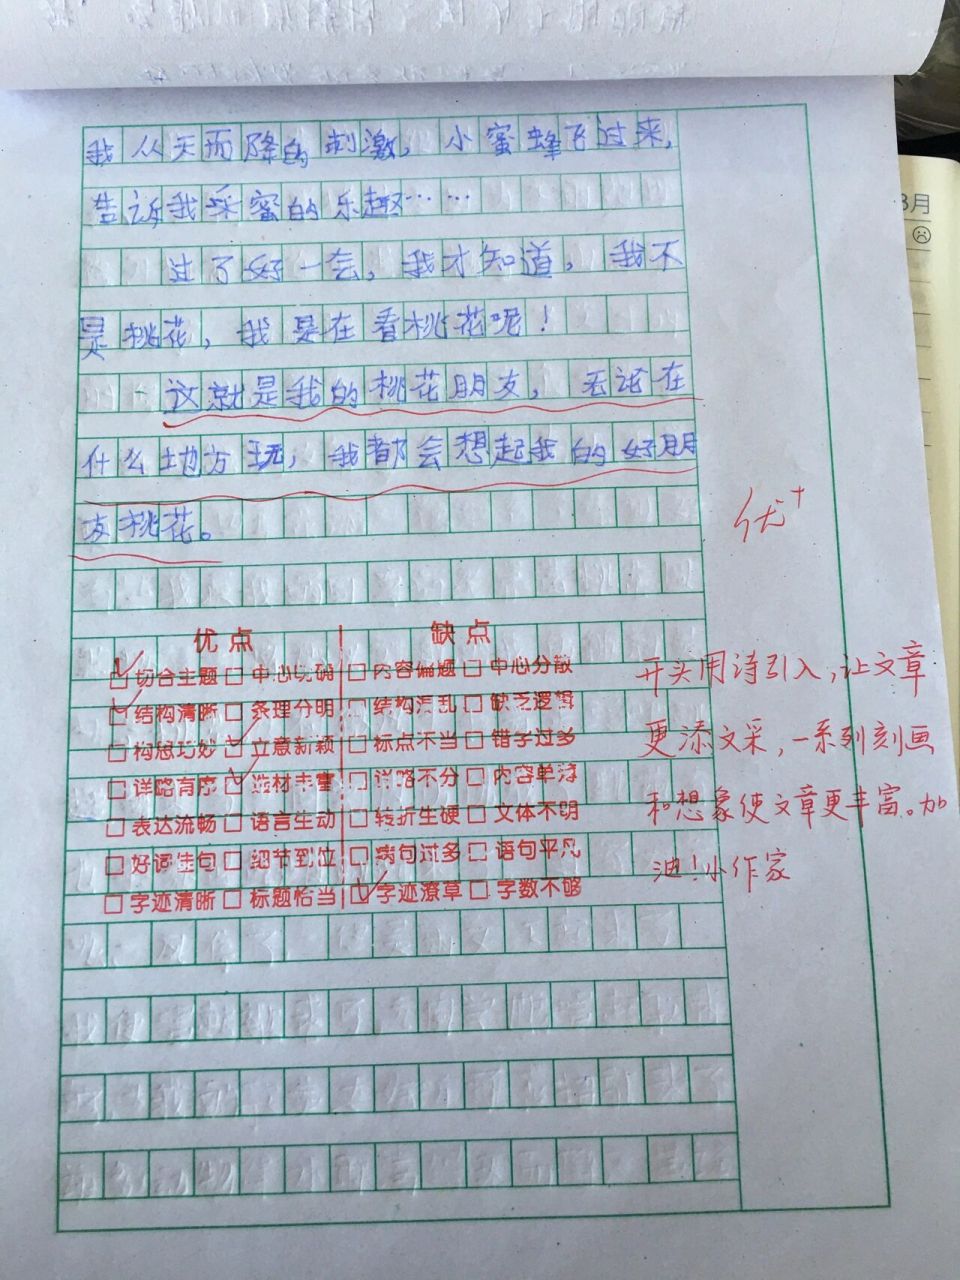 我从天而降的刺激，小蜜蜂飞过来，
告诉我采蜜的乐趣……
过了好一会，我才知道，我不
是桃花，我是在看桃花呢！
这就是我的桃花朋友，无论在
什么地方玩，我都会想起我的好朋
友桃花。
优+
优点 缺点
切合主题 中心明确 内容偏题 中心分散
结构清晰 条理分明 结构混乱 缺乏逻辑
构思巧妙 立意新颖 标点不当 错字过多
详略有序 选材丰富 详略不分 内容单薄
表达流畅 语言生动 转折生硬 文体不明
好词佳句 细节到位 病句过多 语句平凡
字迹清晰 标题恰当 字迹潦草 字数不够
开头用诗引入，让文章
更添文采，一系列刻画
和想象使文章更丰富。加
油！小作家
3月